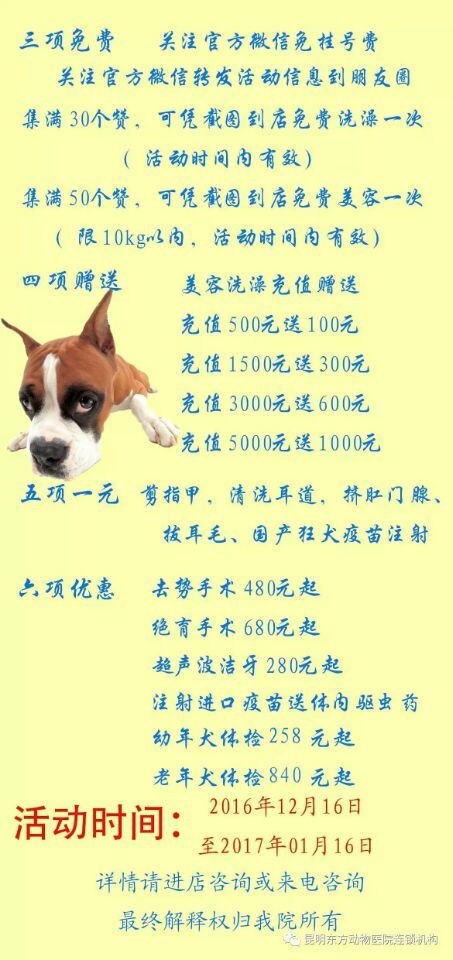 三项免费 关注官方微信免挂号费
关注官方微信转发活动信息到朋友圈
集满30个赞，可凭截图到店免费洗澡一次
（活动时间内有效）
集满50个赞，可凭截图到店免费美容一次
（限10kg以内，活动时间内有效）
四项赠送 美容洗澡充值赠送
充值500元送100元
充值1500元送300元
充值3000元送600元
充值5000元送1000元
五项一元 剪指甲，清洗耳道，挤肛门腺、
拔耳毛、国产狂犬疫苗注射
六项优惠 去势手术480元起
绝育手术680元起
超声波洁牙280元起
注射进口疫苗送体内驱虫药
幼年犬体检258元起
老年犬体检840元起
活动时间：2016年12月16日
至2017年01月16日
详情请进店咨询或来电咨询
最终解释权归我院所有
昆明东方动物医院连锁机构